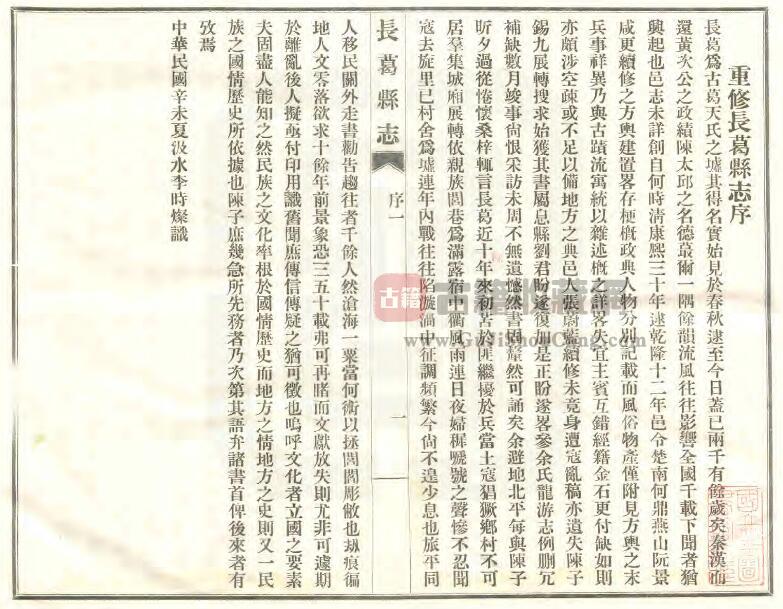 重修長葛縣志序
長葛爲古葛天氏之墟其得名實始見於春秋逮至今日蓋已兩千有餘歲矣秦漢而
還黃次公之政績陳太邱之名德蕞爾一隅餘韻流風往往影響全國千載下聞者猶
興起也邑志未詳創自何時清康熙三十年逮乾隆十二年邑令楚南何鼎燕山阮景
咸更續修之方輿建置畧存梗概政典人物分別記載而風俗物產僅附見方輿之末
兵事祥異乃與古蹟流寓統以雜述概之詳畧失宜主賓互錯經籍金石更付缺如則
亦頗涉空疎或不足以備地方之典邑人張蔚藍續修未竟身遭寇亂稿亦遺失陳子
錫九展轉搜求始獲其書屬息縣劉君盼遂復加是正盼遂畧參余氏龍游志例刪冗
補缺數月竣事尙恨采訪未周不無遺憾然書固犛然可誦矣余避地北平每與陳子
昕夕過從惓懷桑梓輒言長葛近十年來初苦於匪繼擾於兵當土寇猖獗鄉村不可
居羣集城廂展轉依親族閭巷爲滿露宿中衢風雨連日夜婦稺號之聲慘不忍聞
寇去旋里已村舍爲墟連年內戰往往陷漩渦中征調頻繁今尙不遑少息也旅平同
長葛縣志
序一
一
人移民關外走書勸告趨往者千餘人然滄海一粟當何術以拯閭閻彫敝也刼痕徧
地人文零落欲求十餘年前景象恐三五十載弗可再睹而文獻放失則尤非可遽期
於離亂後人擬亟付印用識舊聞庶傳信傳疑之猶可徵也嗚呼文化者立國之要素
夫固盡人能知之然民族之文化率根於國情歷史而地方之情地方之史則又一民
族之國情歷史所依據也陳子庶幾急所先務者乃次第其語弁諸書首俾後來者有
攷焉
中華民國辛未夏汲水李時燦識
古籍收藏網
www.GuJiShouCang.com